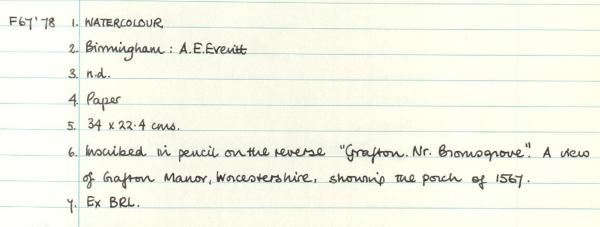 F67'78 1. WATERCOLOUR.
2. Birmingham: A.E.Everitt
3. n.d.
4. Paper
5. 34 x 22.4 cms.
6. Inscribed in pencil on the reverse "Grafton. Nr. Bromsgrove". A view
of Grafton Manor, Worcestershire, showing the porch of 1567.
7. Ex BRL.